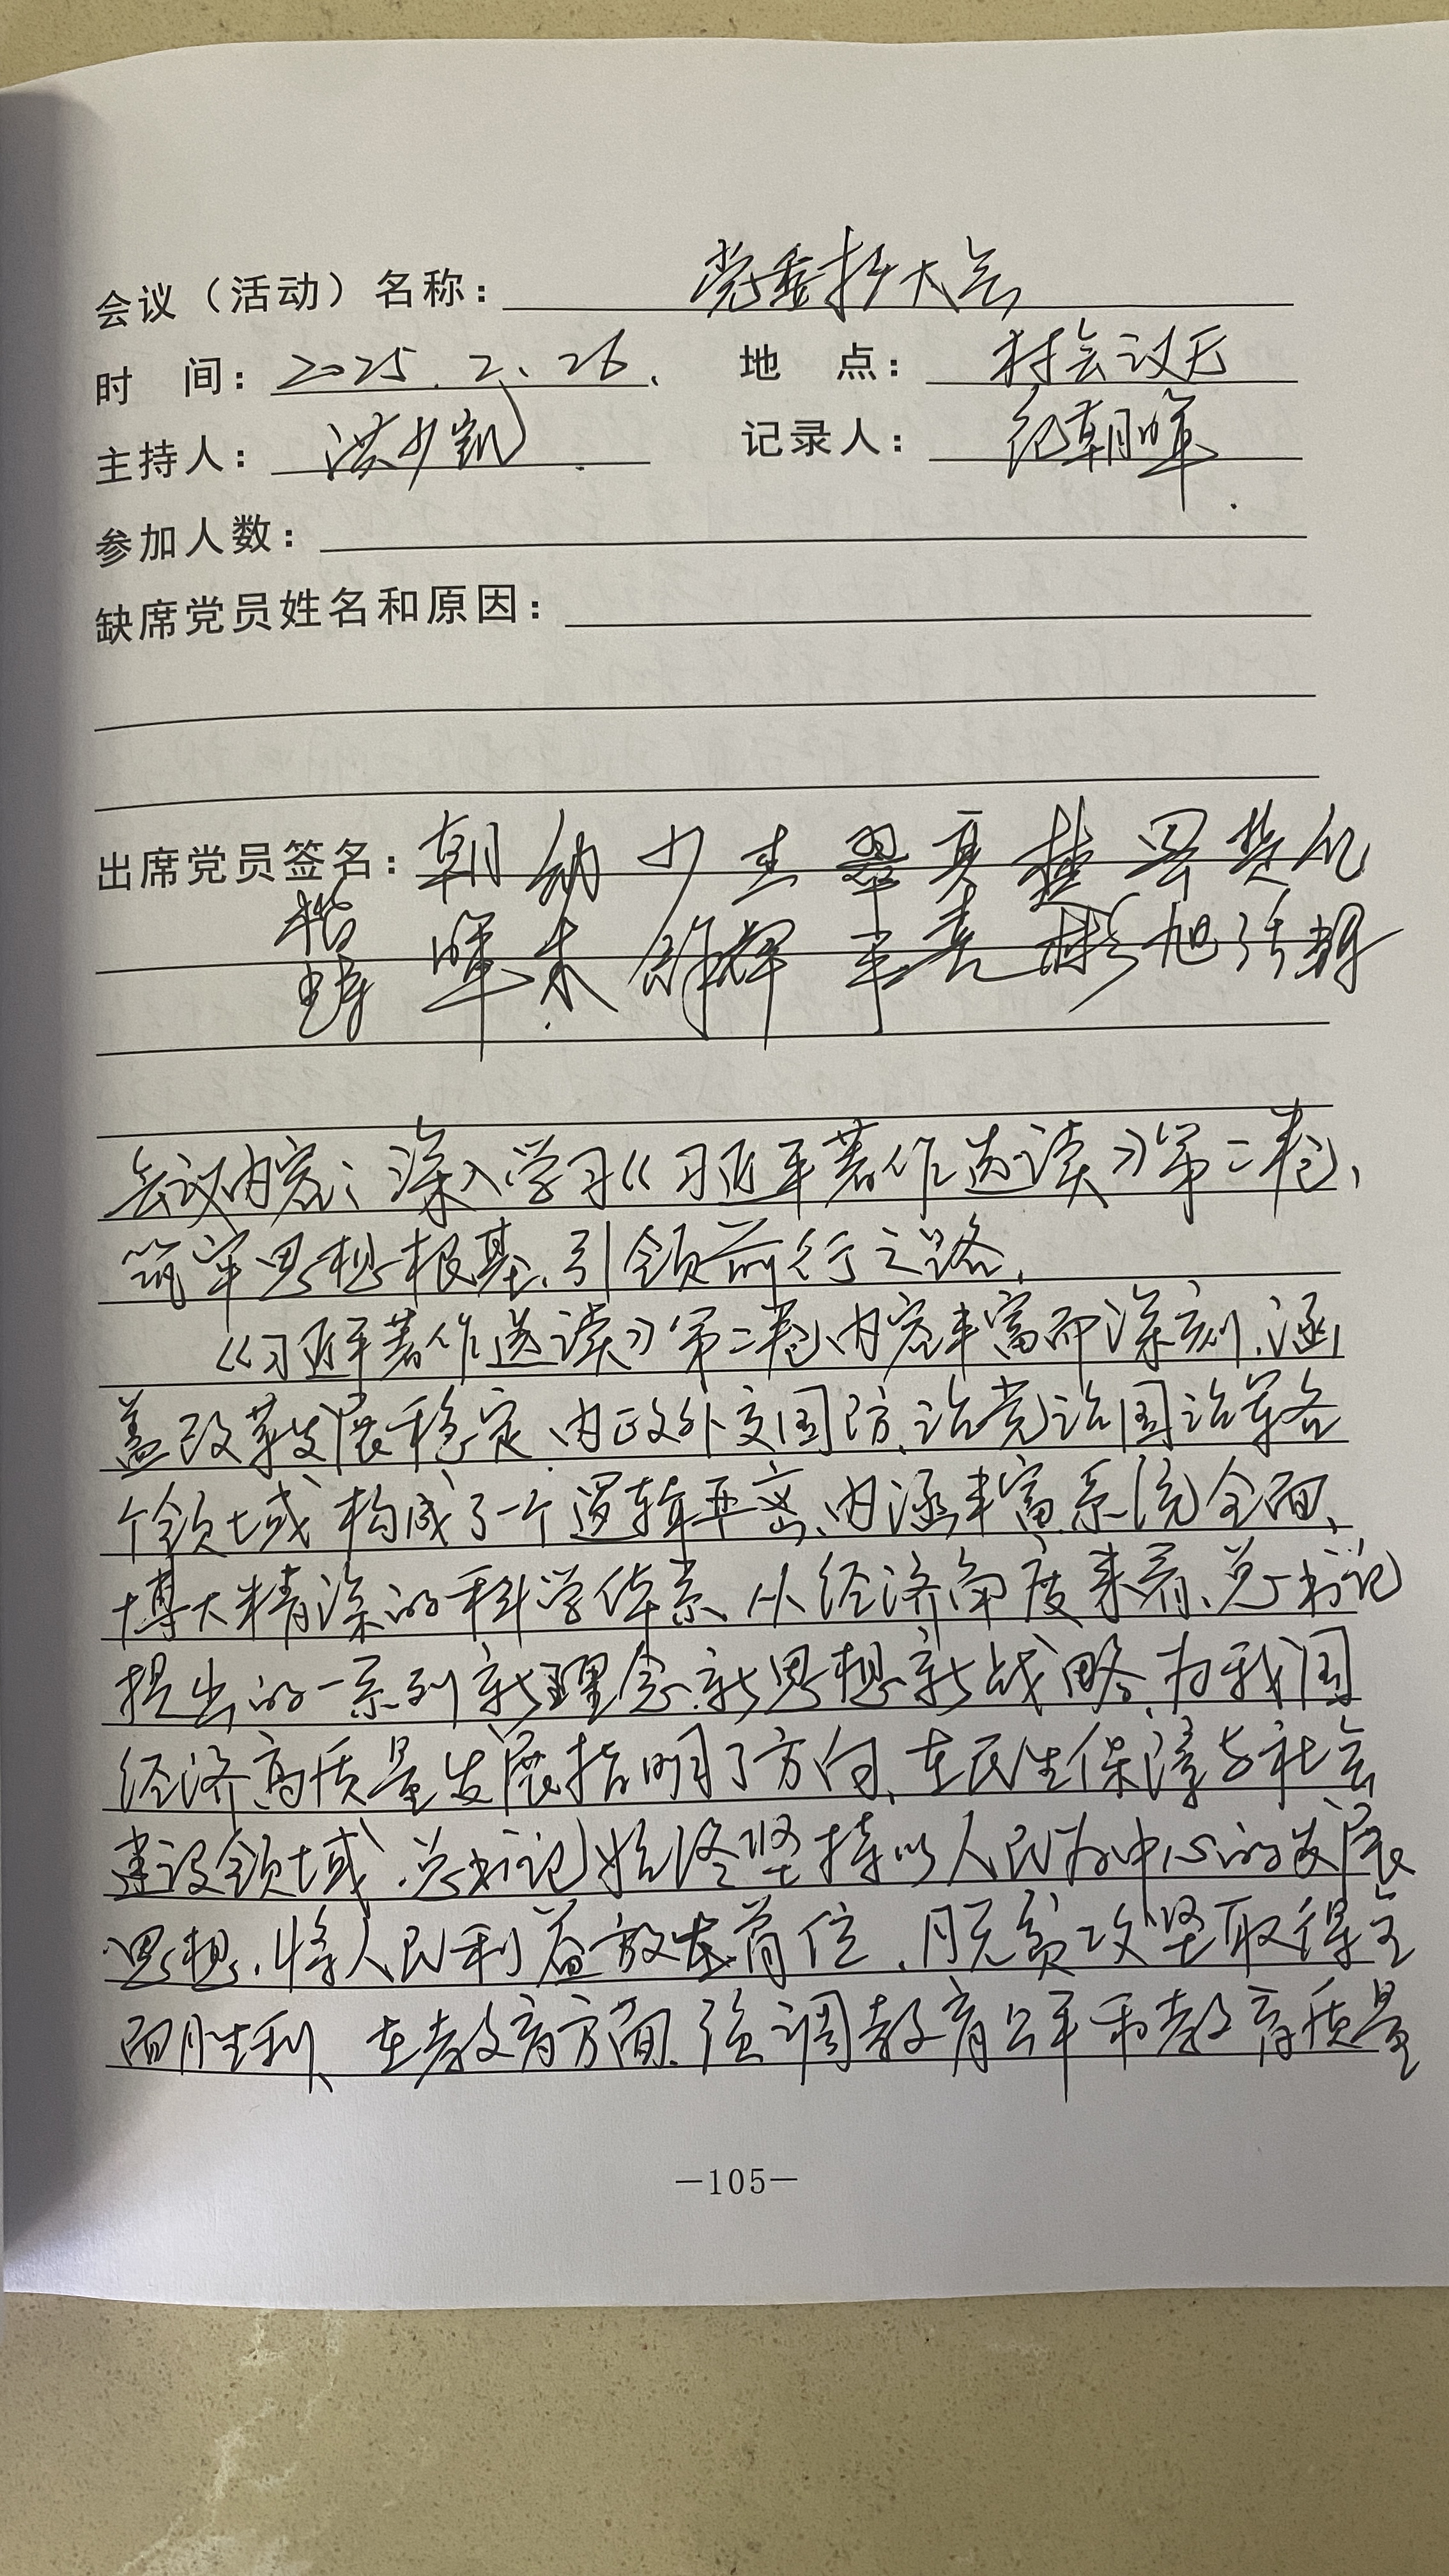 会议（活动）名称：党委扩大会
时 间：2025.2.26. 地 点：村会议厅
主持人：洪少凯. 记录人：纪朝晖.
参加人数：
缺席党员姓名和原因：
出席党员签名：朝 纳 少
楷 晖 东 群 丰 亮 彬 旭
会议内容：深入学习《习近平著作选读》第二卷、
筑牢思想根基、引领前行之路、
《习近平著作选读》第二卷、内容丰富而深刻、涵
盖改革发展稳定、内政外交国防、治党治国治军各
个领域 构成了一个逻辑严密、内涵丰富、系统全面、
博大精深的科学体系、从经济角度来看、总书记
提出的一系列新理念、新思想、新战略、为我国
经济高质量发展指明了方向、在民生保障与社会
建设领域、总书记始终坚持以人民为中心的发展
思想、将人民利益放在首位、脱贫攻坚取得全
面胜利、在教育方面、强调教育公平和教育质量
—105—